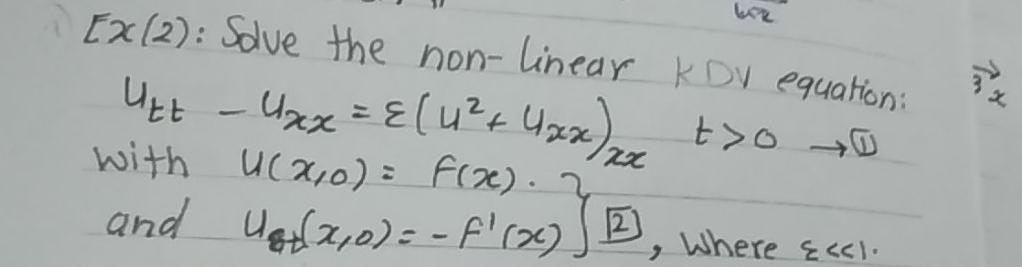 Ex(2): Solve the non-linear KDV equation:
Utt - Uxx = ε(U² + Uxx)xx t>0 → 1
with U(x,0) = f(x).
and Ut(x,0) = -f'(x) } 2, where ε<<1.